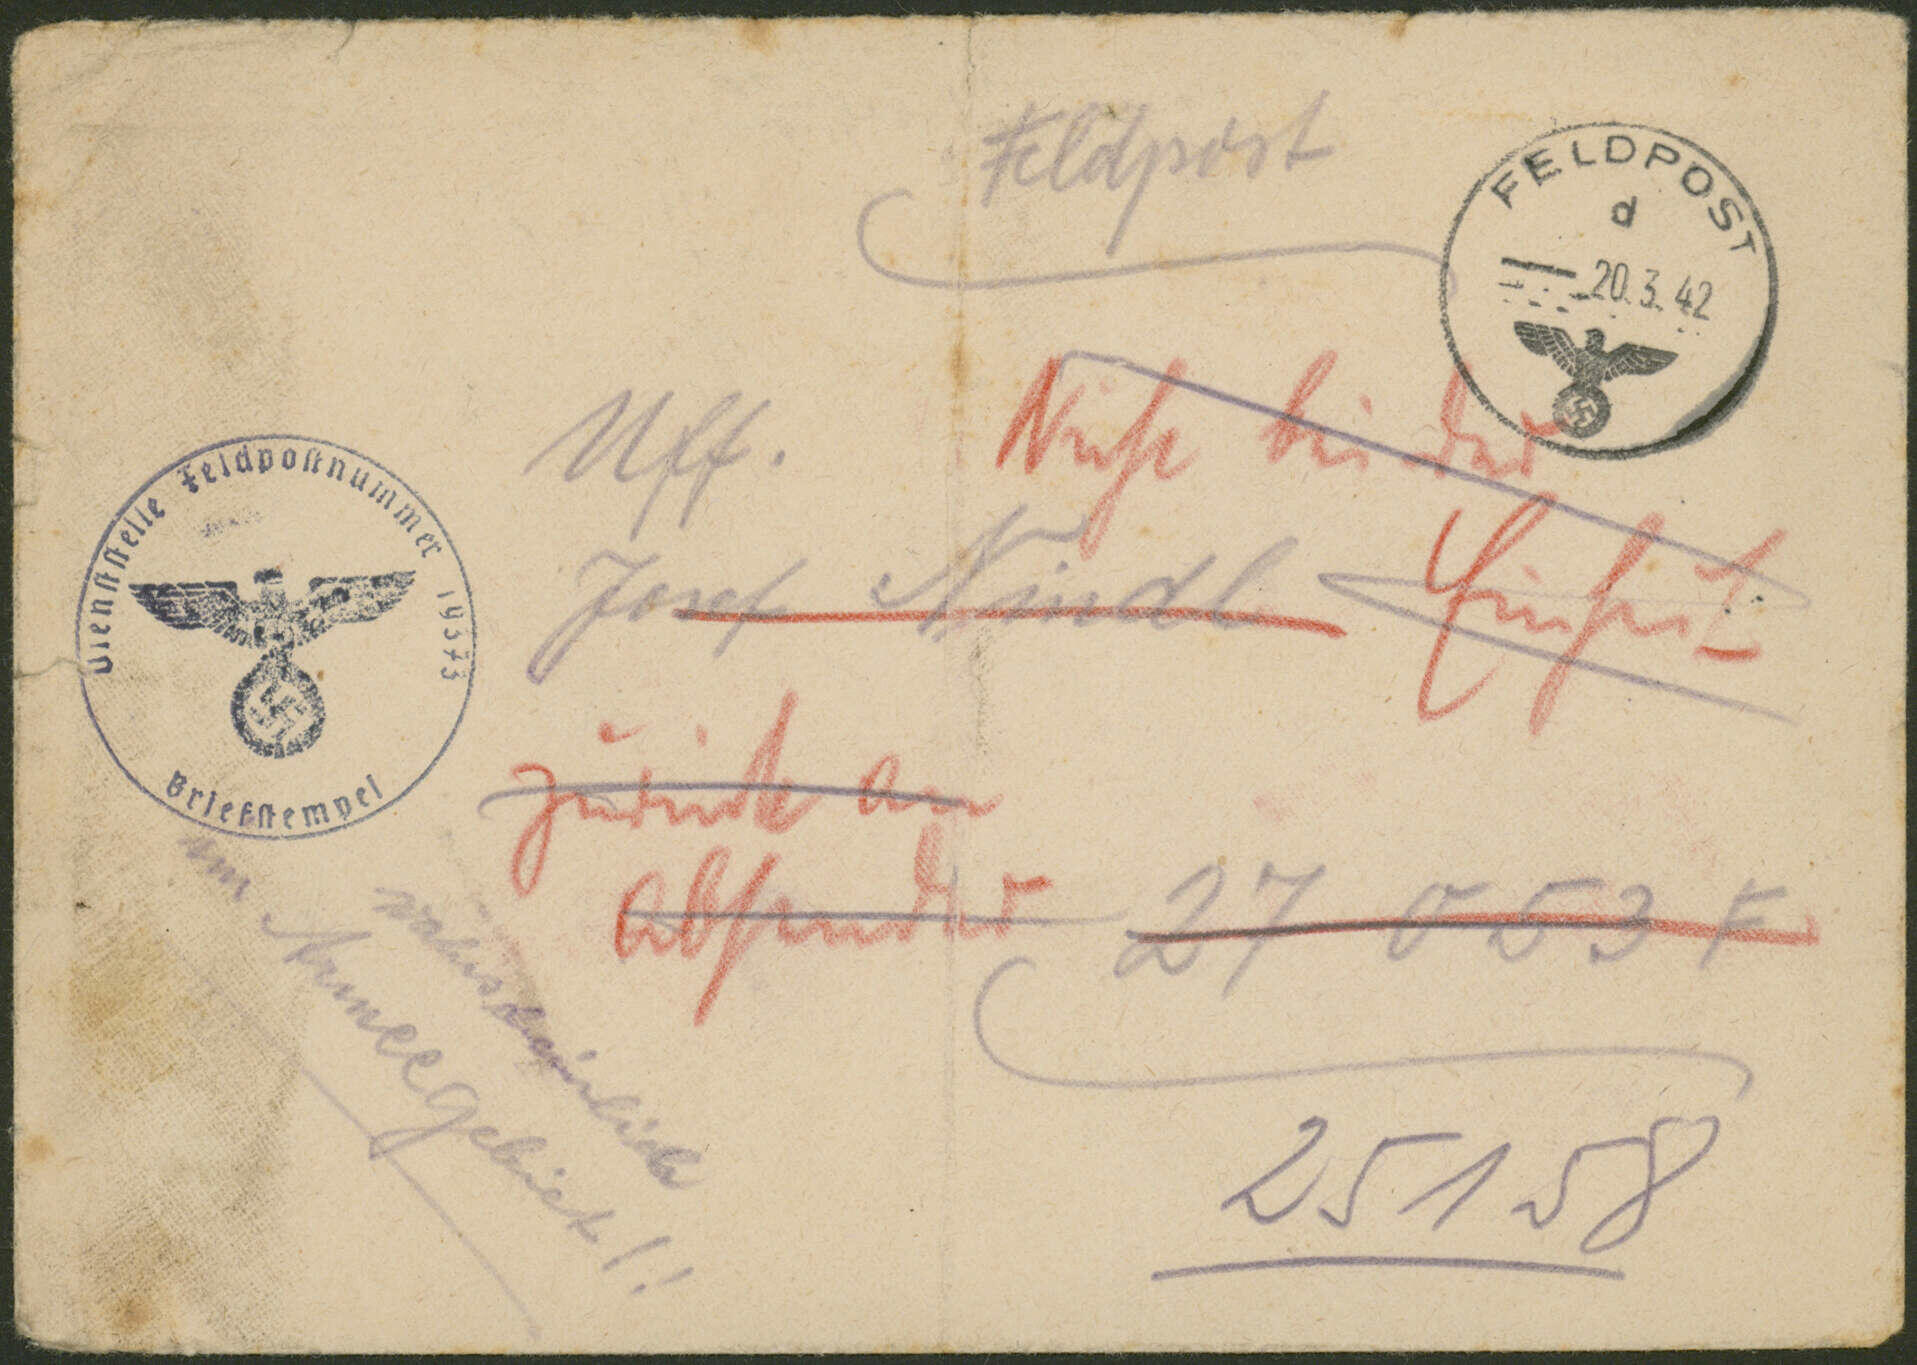 Feldpost
FELDPOST
d
20.3.42
Uff.
Nicht bei der
Einheit
Josef Nindl
Dienststelle Feldpostnummer 19373
Briefstempel
zurück an
Absender
27 053 F
25158
im Armeegebiet!!